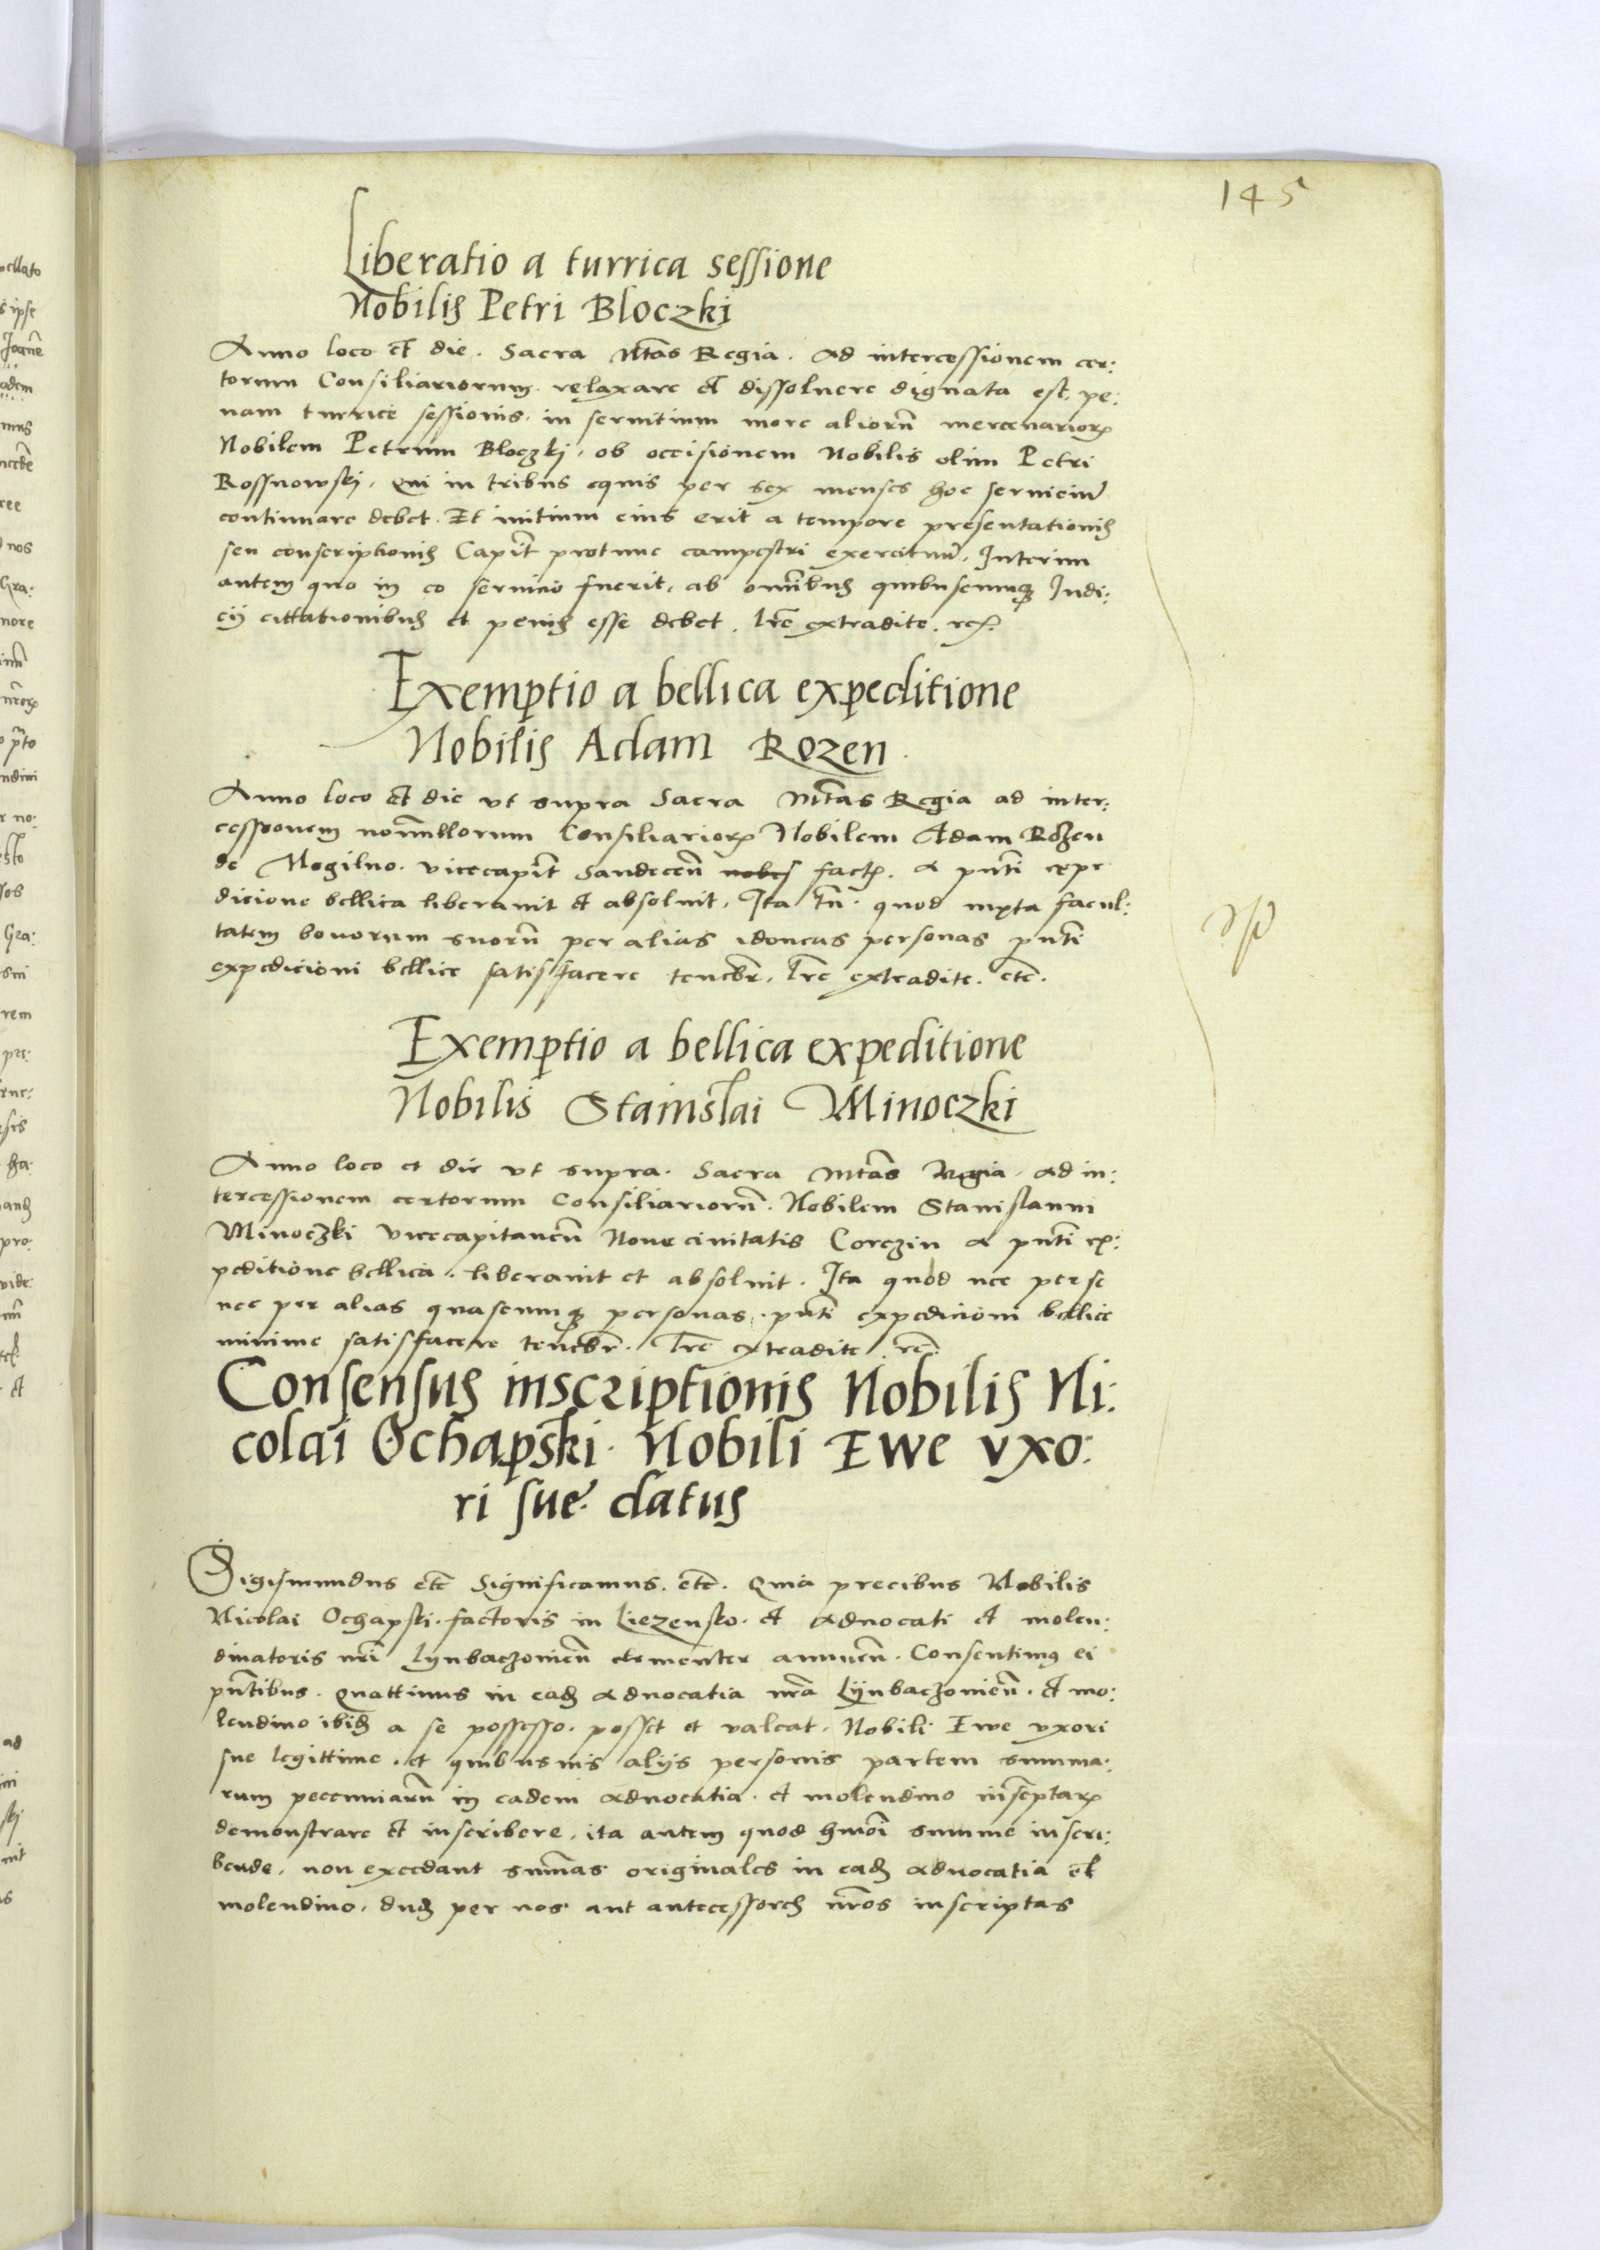 145
Liberatio a turrica sessione
Nobilis Petri Bloczki
Anno loco et die. Sacra Mtas Regia. ad intercessionem cer:
torum Consiliariorum relaxare et dissolvere dignata est, pe:
nam turrice sessionis. in servitium more aliorum mercenariorum
Nobilem Petrum Bloczki, ob occisionem Nobilis olim Petri
Rossnowski, qui in tribus equis per sex menses hoc serviciu
continuare debet. Et initium eius erit a tempore presentationis
seu conscriptionis Capit protunc campestri exercituu, Interim
autem quo in eo servicio fuerit, ab omnibus quibuscumque Judi:
cij cittationibus et penis esse debet. lre extradite.
Exemptio a bellica expeditione
Nobilis Adam Rozen
Anno loco et die ut supra Sacra Mtas Regia ad inter:
cessionem nonnullorum Consiliariorum Nobilem Adam Rozen
de Mogilno. vicecapit Sandecen a pnti expe
dicione bellica liberavit et absolvit, Ita tn. quod iuxta facul:
tatem bonorum suoru per alias idoneas personas pnti
expedicioni bellice satisfacere tenebr. lre extradite. etc.
Exemptio a bellica expeditione
Nobilis Stanislai Minoczki
Anno loco et die ut supra. Sacra Mtas Regia, ad in:
tercessionem certorum Consiliarioru. Nobilem Stanislaum
Minoczki vicecapitaneu Nove civitatis Corczin a pnti ex:
peditione bellica. liberavit et absolvit. Ita quod nec per se
nec per alias quascumque personas. pnti expedicioni bellice
minime satisfacere tenebr. Lre extradite.
Consensus inscriptionis Nobilis Ni:
colai Ochapski. Nobili Ewe uxo:
ri sue. datus
Sigismundus etc Significamus. etc. Quia precibus Nobilis
Nicolai Ochapski. factoris in Liezensko. et advocati et molen:
dinatoris nri Lynbaczoviens clementer annuen. Consentimus ei
pntibus. Quattinus in ead advocatia nra Lijnbaczovien. et mo:
lendino ibid a se possesso. posset et valeat. Nobili Ewe uxori
sue legittime. et quibusuis alijs personis partem summa:
rum pecuniaru in eadem advocatia. et molendino inscptarum
demonstrare et inscribere. ita autem quod hmoi summe inscri:
bende. non excedant summas originales in ead advocatia et
molendino. dud per nos aut antecessores nros inscriptas